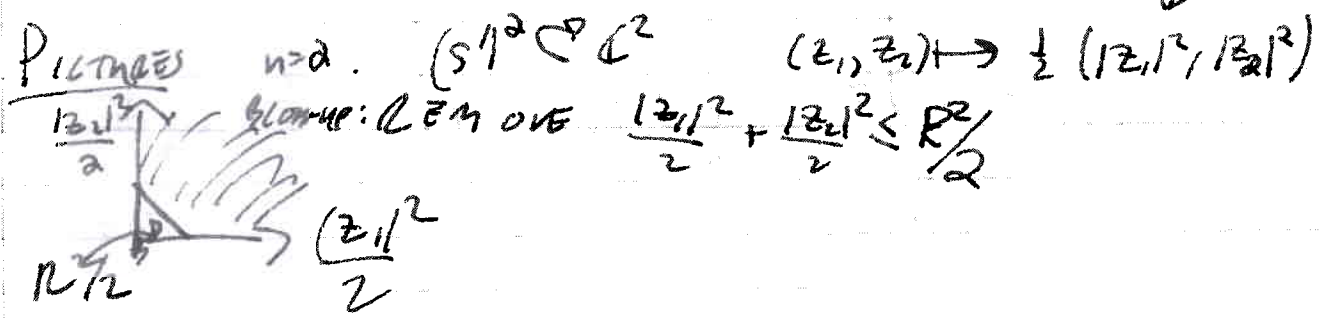 PICTURES n=2. (S¹)² ⊂ ℂ² (z₁, z₂) ↦ ½ (|z₁|², |z₂|²)
|z₂|²/2 Blow-up: REMOVE |z₁|²/2 + |z₂|²/2 ≤ R²/2
|z₁|²/2
R²/2